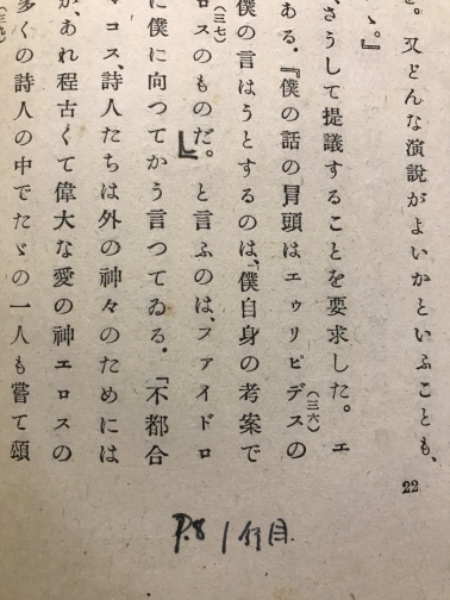 。又どんな演説がよいかといふことも、
ゝ。』
、さうして提議することを要求した。　エ
(三六)
ある。『僕の話の冒頭はエウリピデスの
僕の言はうとするのは、僕自身の考案で
(三七)
ロスのものだ。』と言ふのは、ファイドロ
に僕に向つてかう言つてゐる。「不都合
マコス、詩人たちは外の神々のためには
が、あれ程古くて偉大な愛の神エロスの
多くの詩人の中でたゞの一人も嘗て頌
22
P.8 1行目.